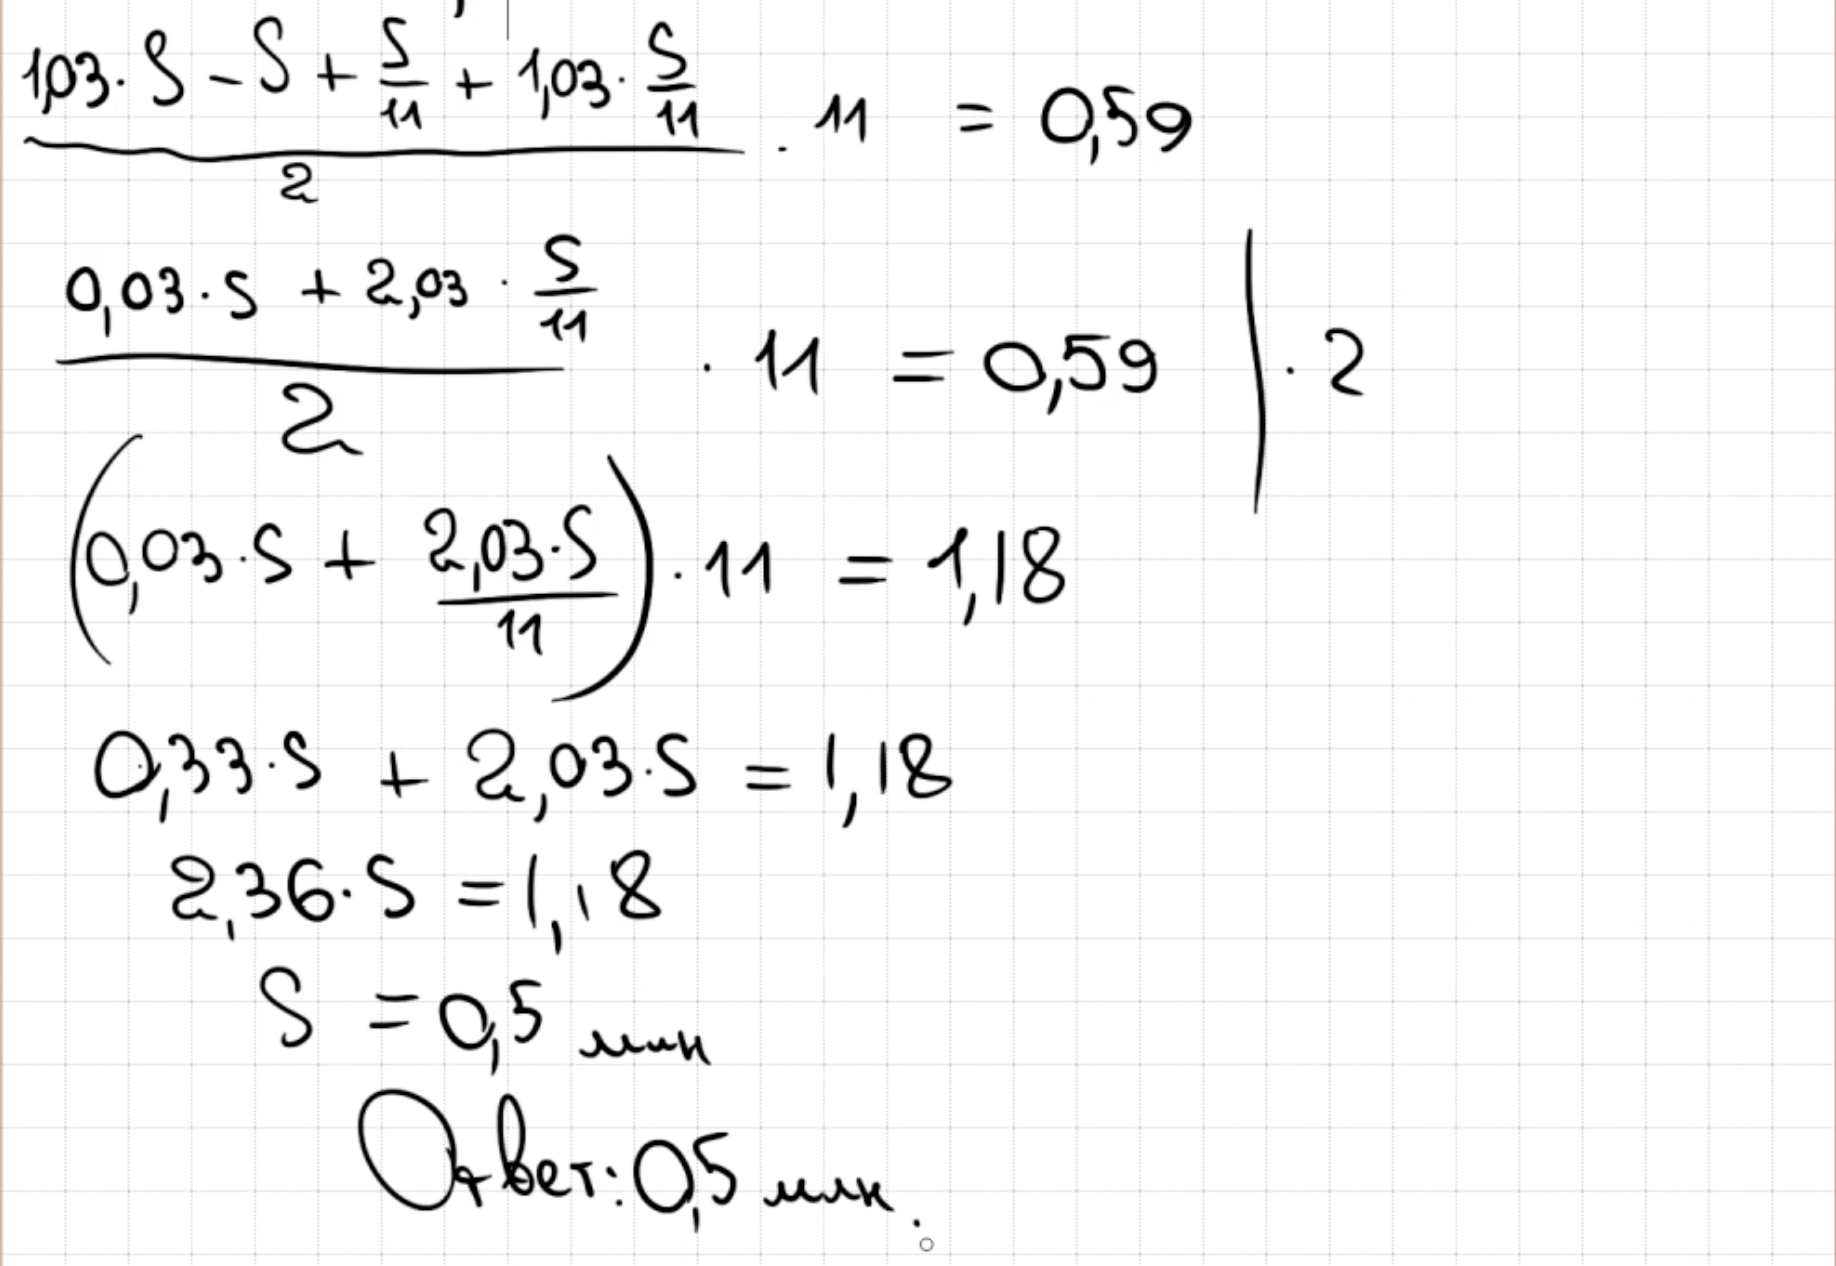 (1,03·S - S + S/11 + 1,03·S/11)/2 · 11 = 0,59
(0,03·S + 2,03·S/11)/2 · 11 = 0,59 | ·2
(0,03·S + 2,03·S/11) · 11 = 1,18
0,33·S + 2,03·S = 1,18
2,36·S = 1,18
S = 0,5 млн
Ответ: 0,5 млн.